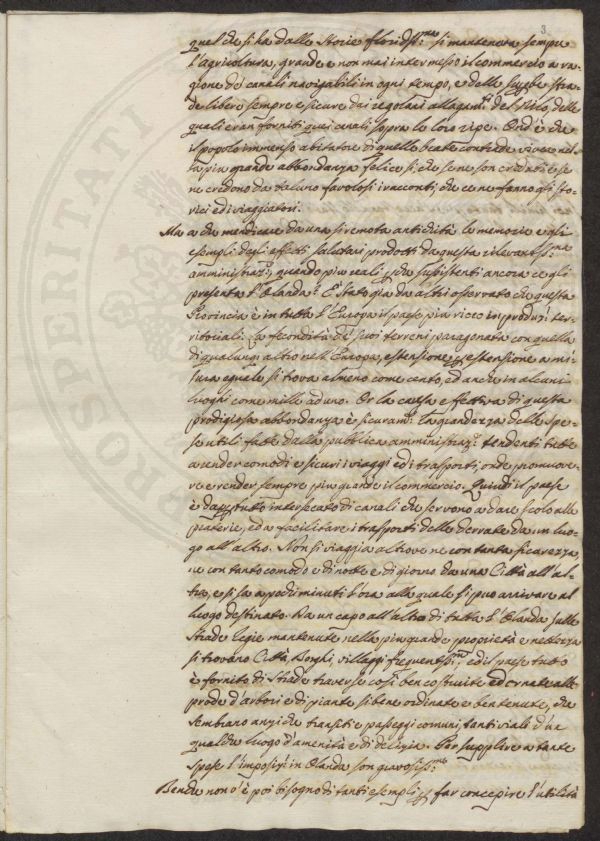 3
quel che si ha dalle Storie floridiss:me si manteneva sempre
l'agricoltura, grande e non mai intermesso il commercio a ra-
gione de' canali navigabili in ogni tempo, e delle stra-
de libere sempre e sicure dai regolari allagam:ti del Nilo, delle
quali eran forniti quei canali sopra le loro ripe. Ond'è che
il popolo immenso abitatore di quelle beate contrade vivea nel-
la più grande abbondanza felice sì, che se ne son creduti e se
ne credono da taluno favolosi i racconti, che ce ne fanno gli sto-
rici ed i viaggiatori.
Ma a che mendicare da una sì remota antichità le memorie e gli
esempli degli effetti salutari prodotti da questa rilevantiss:ma
amministraz:e, quando più reali, perché sussistenti ancora ce gli
presenta l'Olanda? È stato già da altri osservato che questa
Provincia è in tutta l'Europa il paese più ricco in produz:i ter-
ritoriali. La fecondità de' suoi terreni paragonata con quella
di qualunq: altro nell'Europa, estensione per estensione a mi-
sura eguale si trova almeno come cento, ed anche in alcuni
luoghi come mille ad uno. Or la causa effettiva di questa
prodigiosa abbondanza è sicuram:te la grandezza delle spe-
se utili fatte dalla pubblica amministraz:e tendenti tutte
a render comodi e sicuri i viaggi ed i trasporti, onde promuove-
re e render sempre più grande il commercio. Quindi il paese
è dappertutto intersecato di canali che servono a dare scolo alle
praterie, ed a facilitare i trasporti delle derrate da un luo-
go all'altro. Non si viaggia altrove ne con tanta sicurezza,
ne con tanto comodo e di notte e di giorno da una Città all'al-
tra, e si sa a pochi minuti l'ora alla quale si può arrivare al
luogo destinato. Da un capo all'altro di tutta l'Olanda sulle
strade Regie mantenute nella più grande proprietà e nettezza
si trovano Città, Borghi, villaggi frequentiss:mi, ed il paese tutto
è fornito di strade traverse così ben costruite ed ornate alle
prode d'arbori e di piante sì bene ordinate e ben tenute, che
sembrano anzi che transiti e passeggi comuni, tanti viali d'un
qualche luogo d'amenità e di delizia. Per supplire a tante
spese l'imposiz:i in Olanda son gravosiss:me
Benche non v'è poi bisogno di tanti esempli per far concepire l'utilità
PROSPERITATI